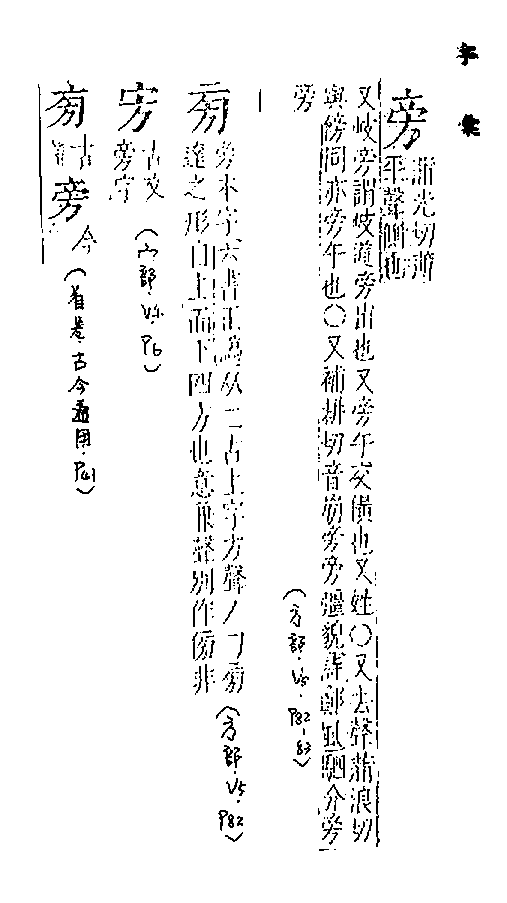 字彙
旁 蒲光切蒡
平聲側也
又岐旁謂岐道旁出也又旁午交橫也又姓○又去聲蒲浪切
與傍同亦旁午也○又補耕切音崩旁旁彊貌詩鄭風駟介旁
旁
(方部.V5.P82-83)
旁本字六書正譌从二古上字方聲丿冂旁
達之形自上而下四方也意兼聲別作傍非
(方部.V5.P82)
古文
旁字
(宀部.V4.P6)
古
旁 今
(首卷.古今通用.P41)